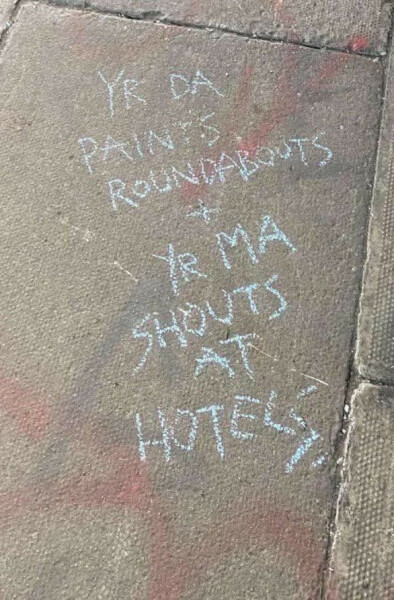 YR DA
PAINTS
ROUNDABOUTS
+
YR MA
SHOUTS
AT
HOTELS